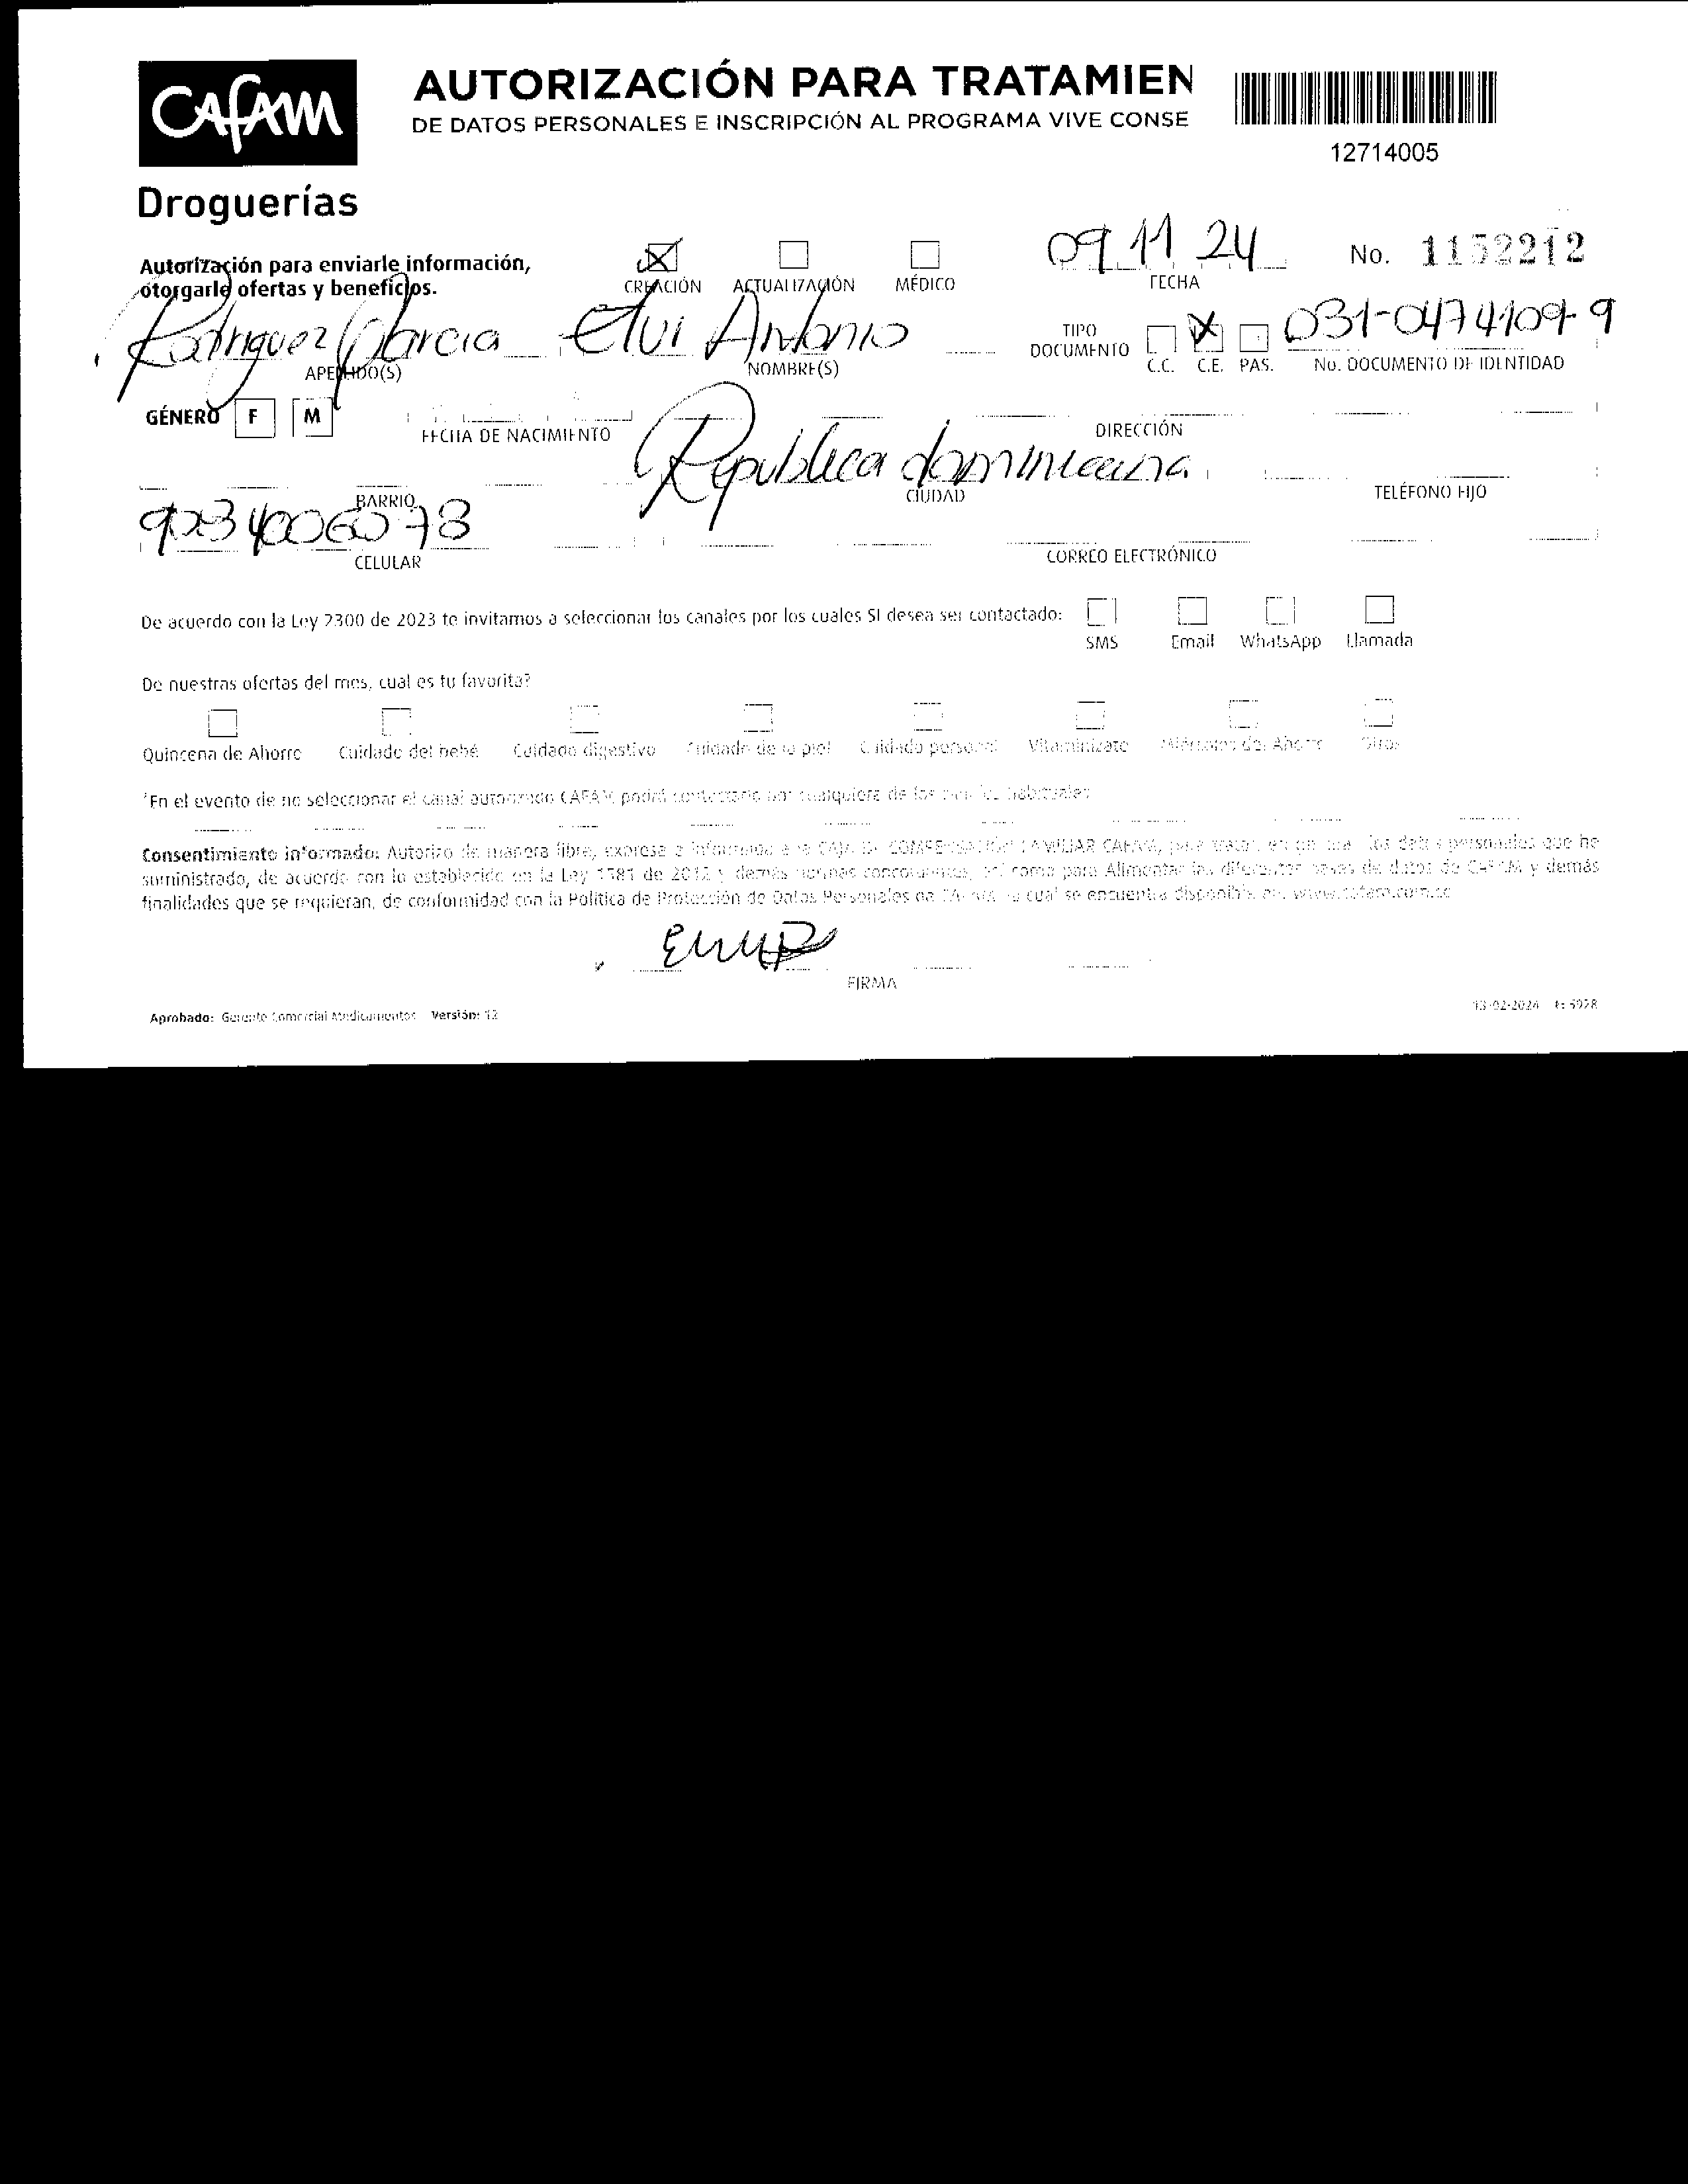 CAFAM
Droguerías
AUTORIZACIÓN PARA TRATAMIEN
DE DATOS PERSONALES E INSCRIPCIÓN AL PROGRAMA VIVE CONSE
12714005
Autorización para enviarle información,
otorgarle ofertas y beneficios.
CREACIÓN ACTUALIZACIÓN MÉDICO
09 11 24
FECHA
No. 1152212
Rodriguez Garcia Elvi Antonio
APELLIDO(S) NOMBRE(S)
TIPO DOCUMENTO
C.C. C.E. PAS.
031-0474109-9
No. DOCUMENTO DE IDENTIDAD
GÉNERO F M
FECHA DE NACIMIENTO
DIRECCIÓN
BARRIO
Republica dominicana
CIUDAD
TELÉFONO FIJO
CELULAR
CORREO ELECTRÓNICO
De acuerdo con la Ley 2300 de 2023 te invitamos a seleccionar los canales por los cuales SI desea ser contactado:
SMS Email WhatsApp Llamada
De nuestras ofertas del mes, cual es tu favorita?
Quincena de Ahorro Cuidado del bebé Cuidado digestivo Cuidado de la piel Cuidado personal Vitaminízate Miércoles del Ahorro Otros
*En el evento de no seleccionar el canal autorizado CAFAM podrá contactarlo por cualquiera de los medios habituales
Consentimiento informado: Autorizo de manera libre, expresa e informada a la CAJA DE COMPENSACIÓN FAMILIAR CAFAM, para los datos personales que he
suministrado, de acuerdo con lo establecido en la Ley 1581 de 2012 y demás normas concordantes, así como para Alimentar las diferentes bases de datos de CAFAM y demás
finalidades que se requieran, de conformidad con la Política de Protección de Datos Personales de CAFAM la cual se encuentra disponible en: www.cafam.com.co
FIRMA
Aprobado: Gerente Comercial Medicamentos Versión: 12
13-02-2024